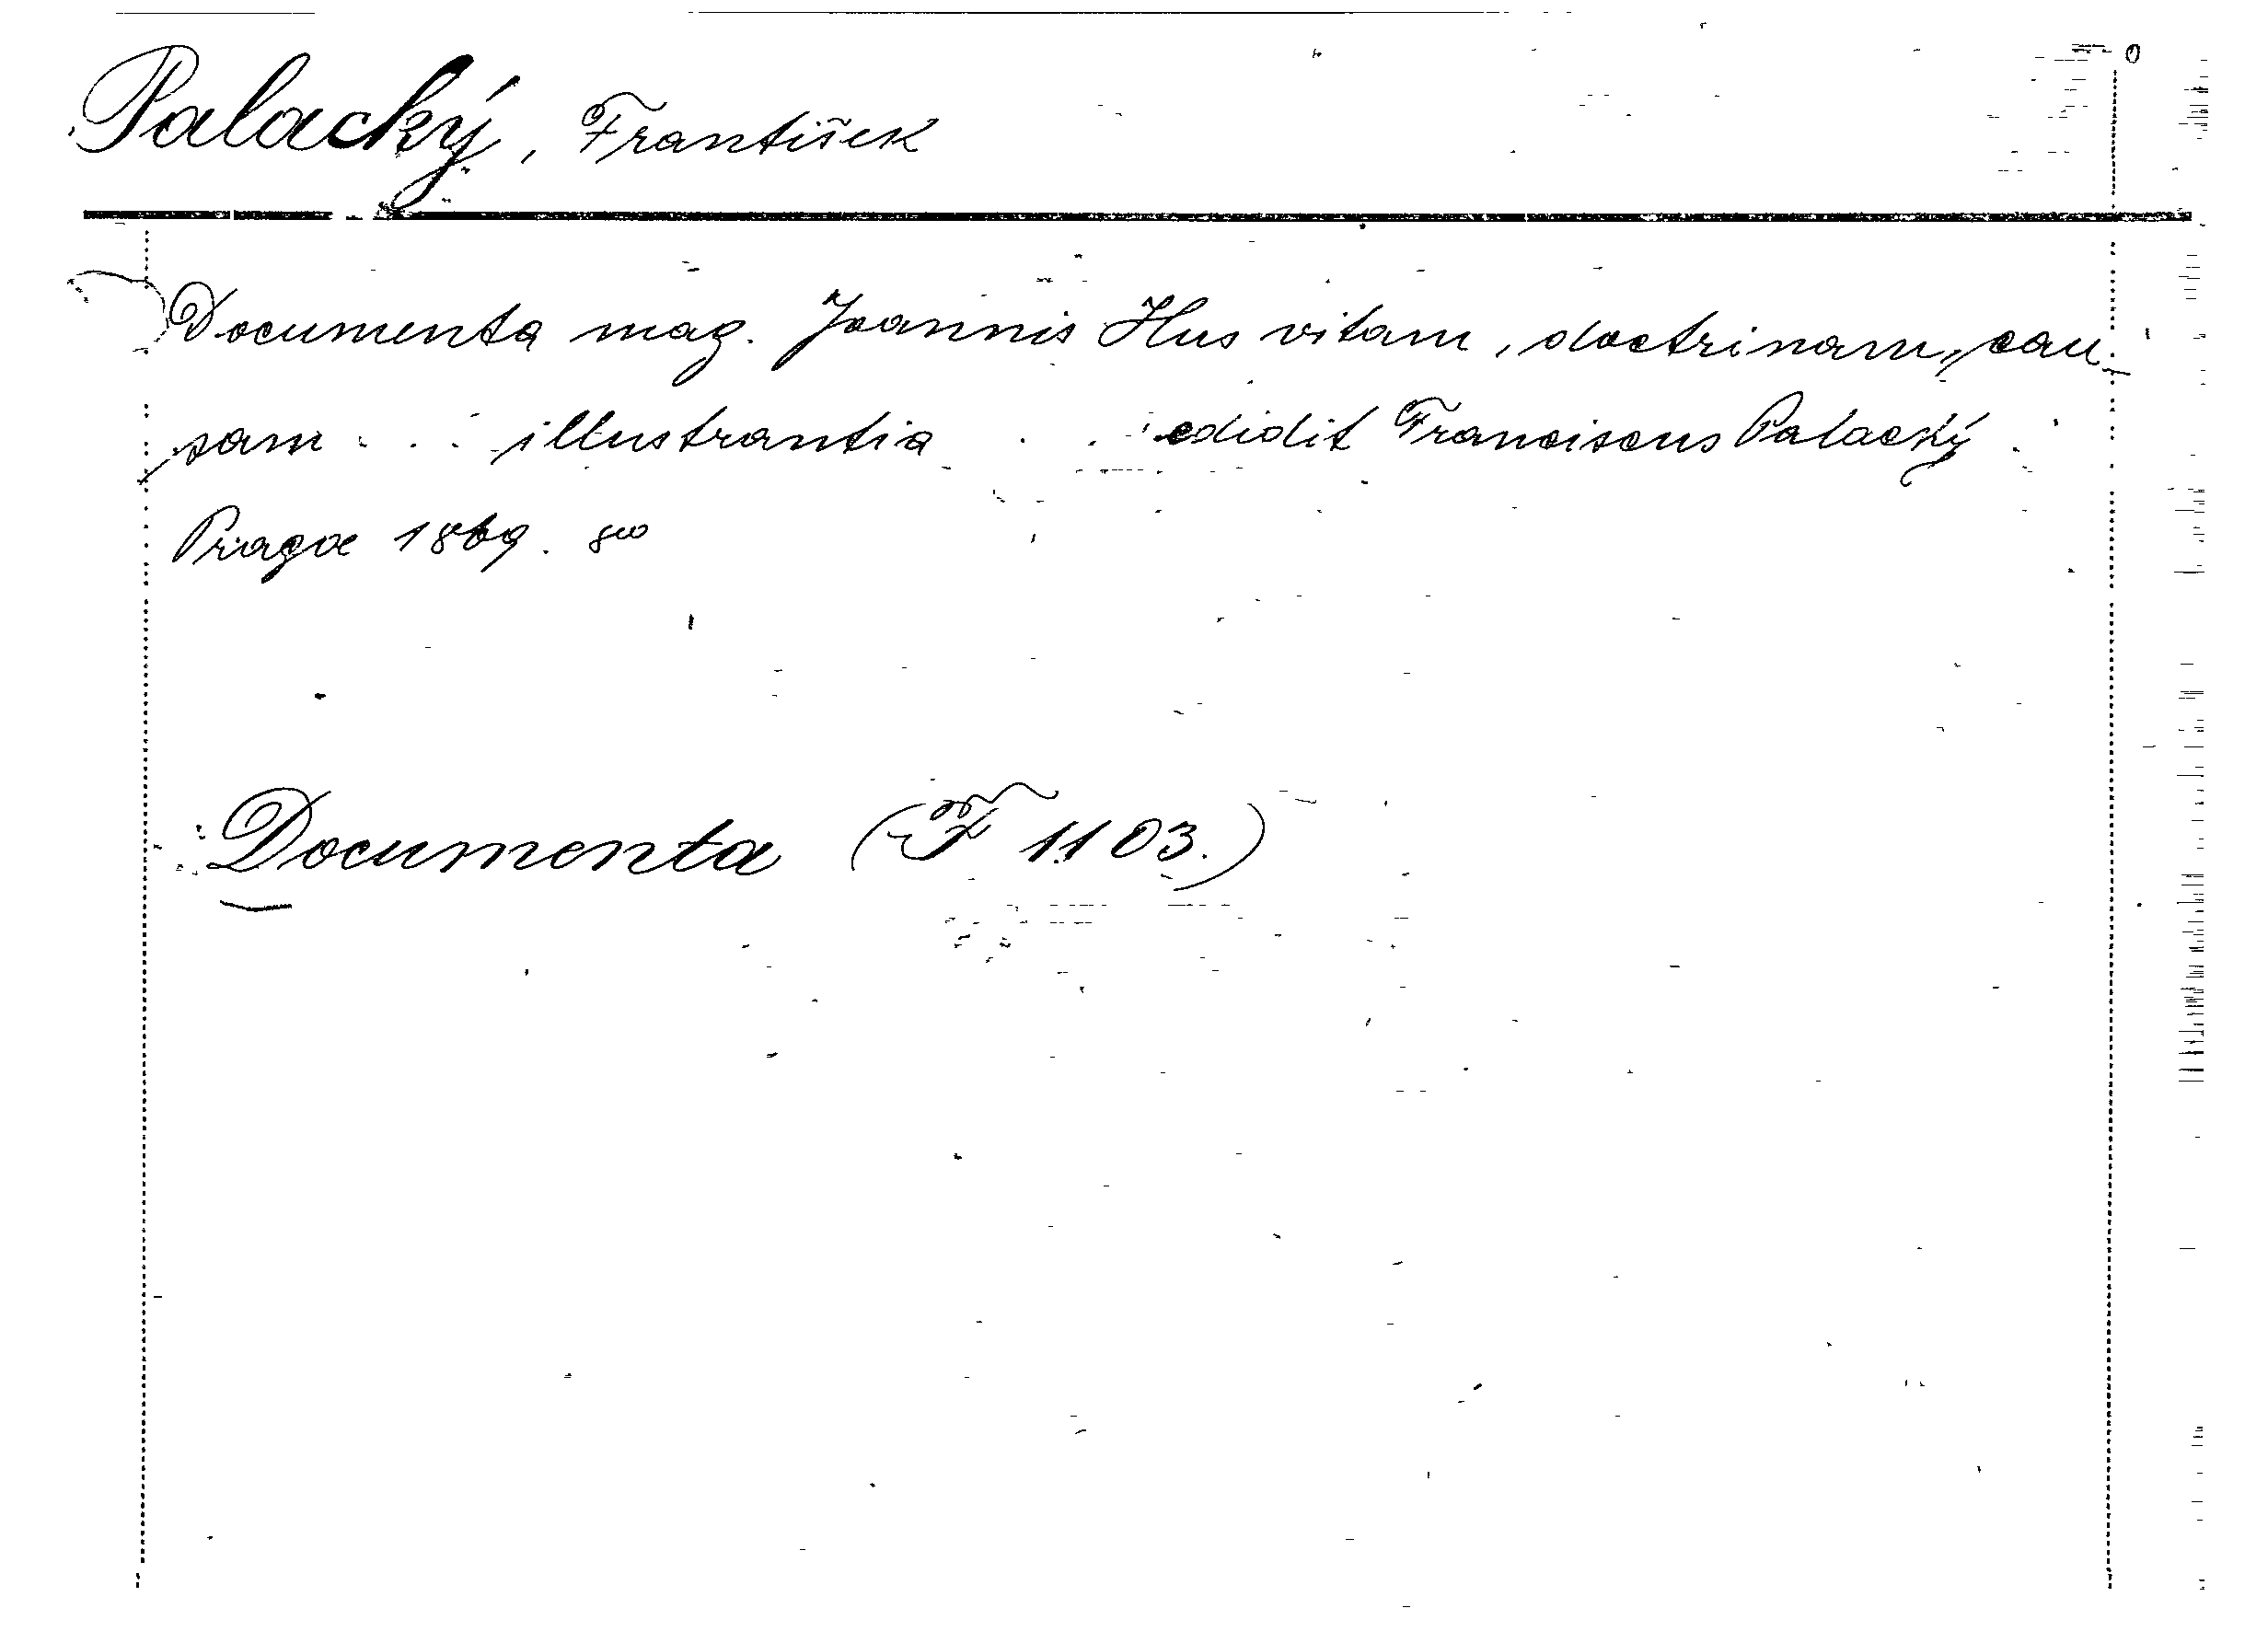 Palacký, František
Documenta mag. Joannis Hus vitam, doctrinam, cau-
sam . . . illustrantia . . . edidit Franciscus Palacký.
Pragae 1869. 8vo
Documenta (F 1103.)